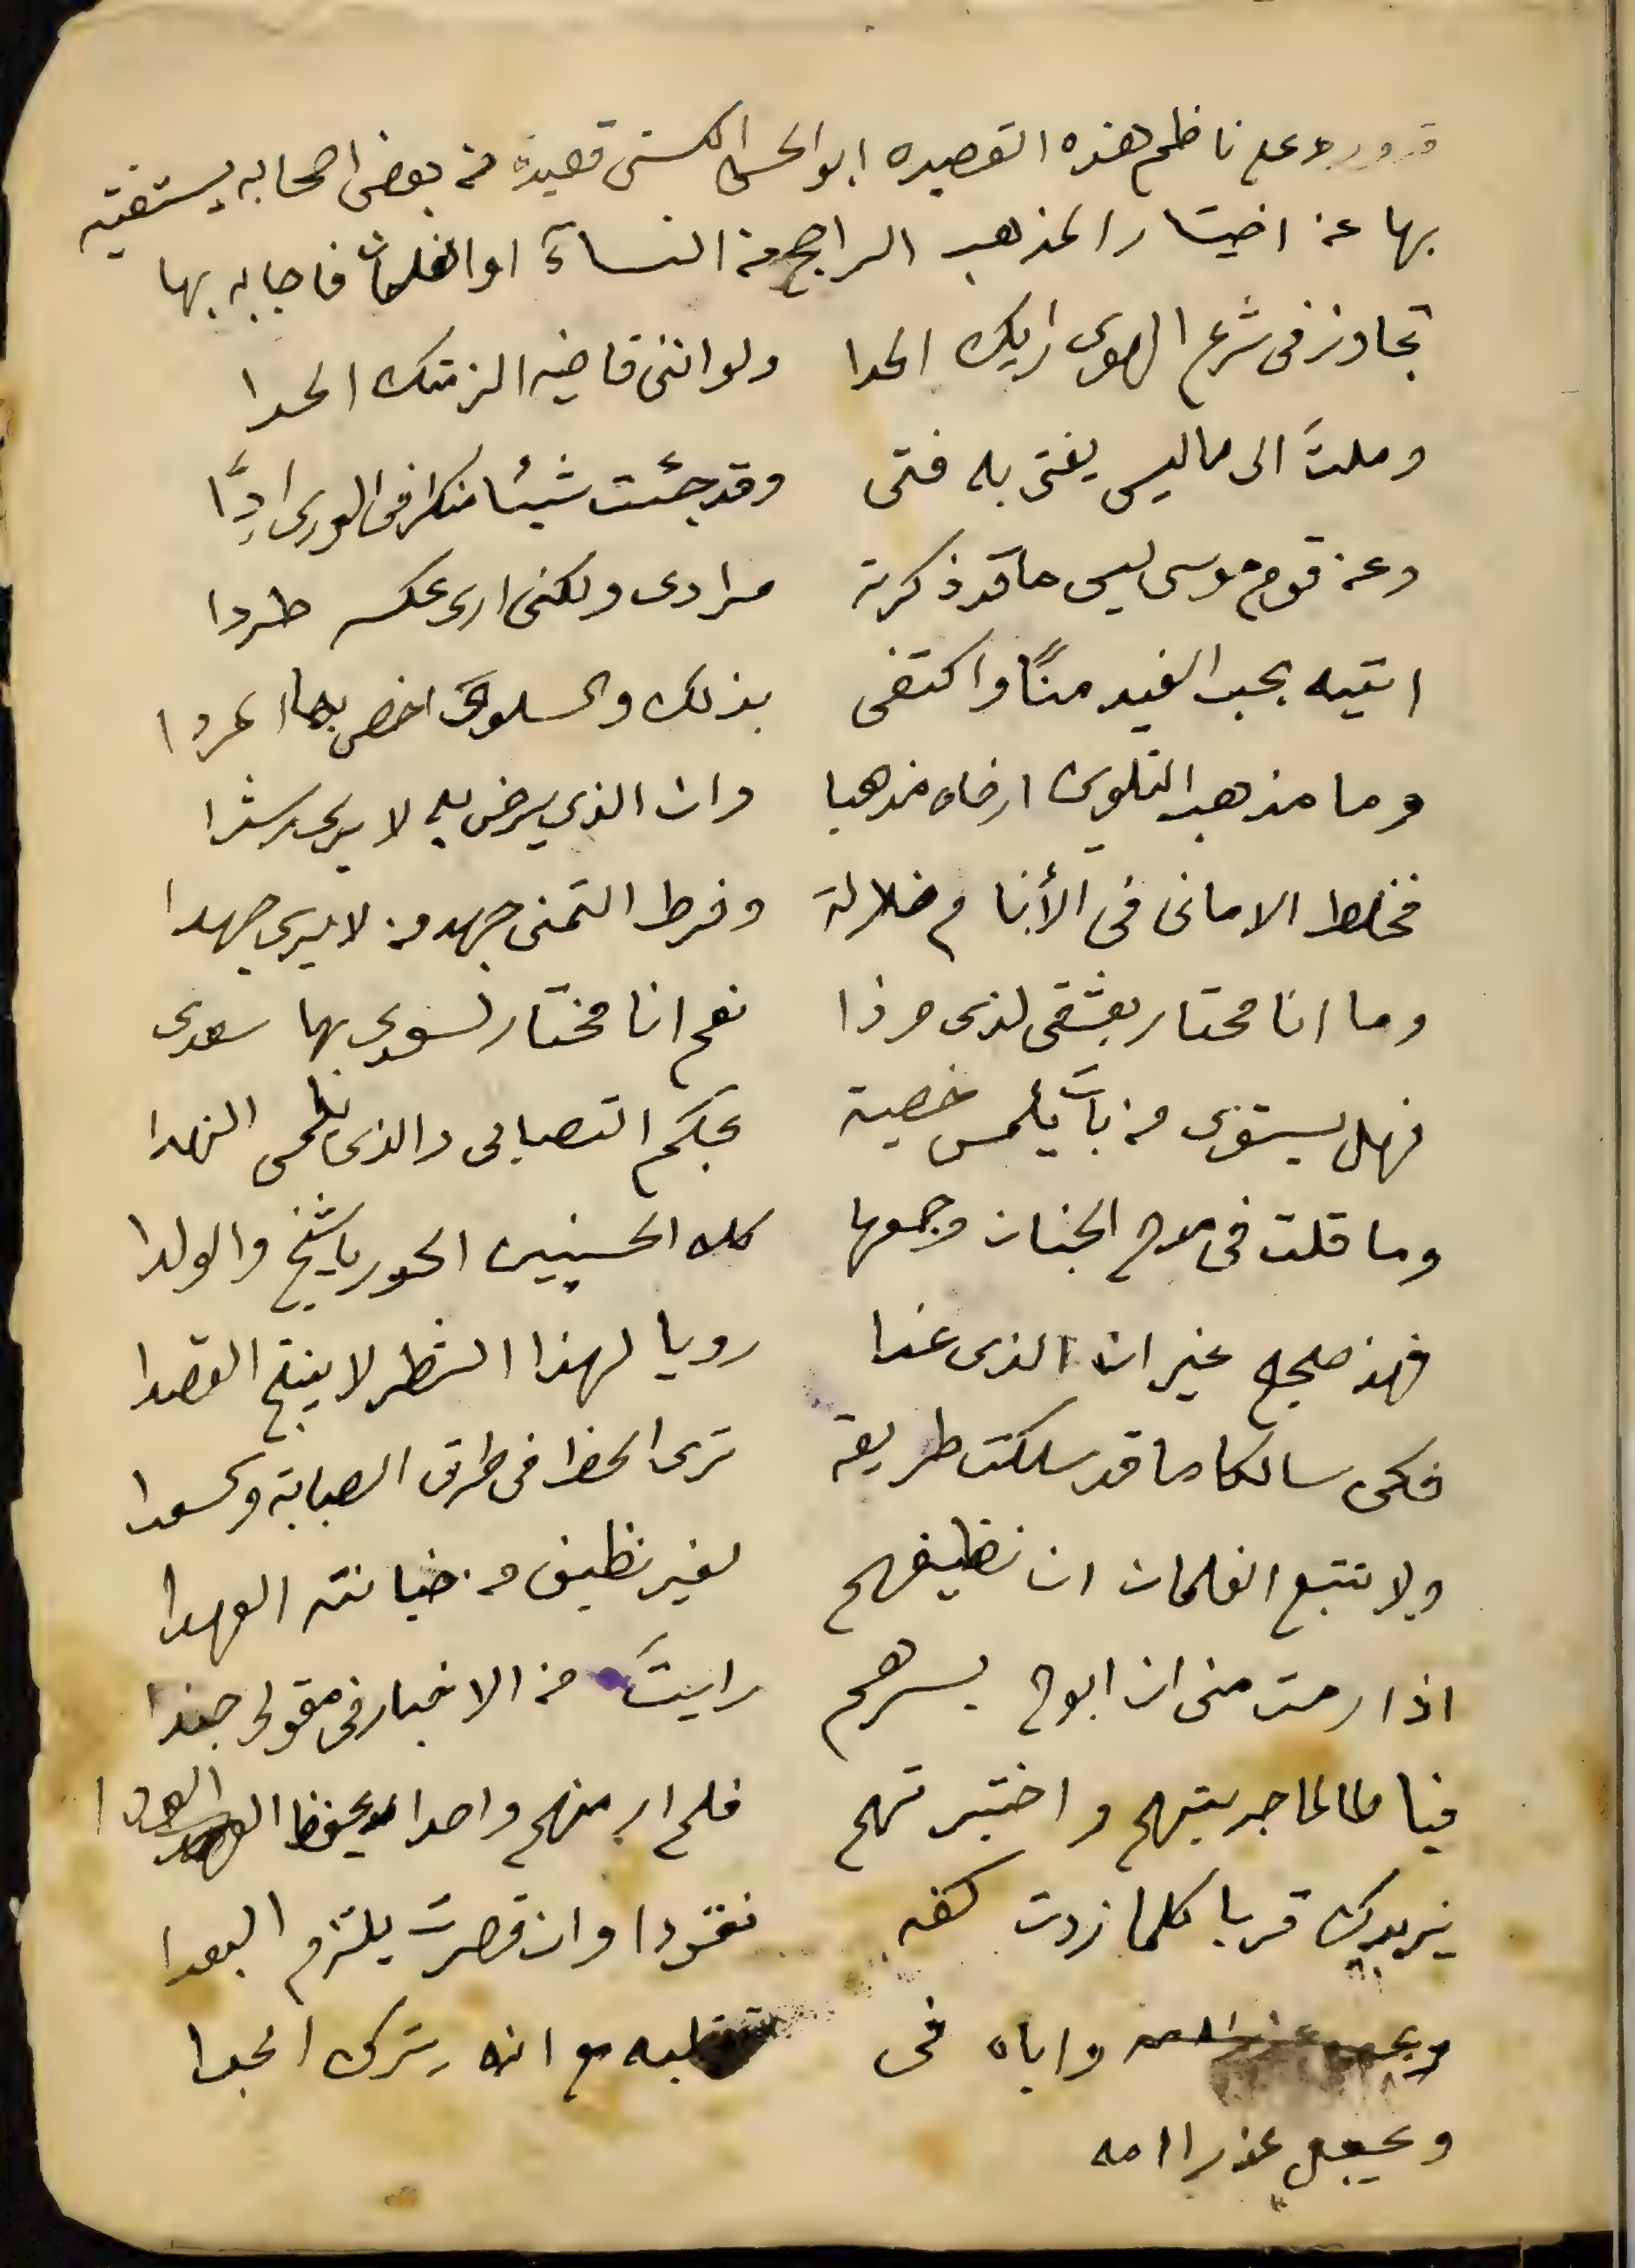 قد ورد على ناظم هذه القصيده ابو الحسن الكستى قصيدة من بعض اصحابه يستفتيه
بها عن اختيار المذهب الراجح من النسآء او الغلمان فاجابه بها
تجاوز فى شرع الهوى رايك الحدا ولو اننى قاضيه الزمتك الحدا
وملتَ الى ما ليس يفتى به فتى وقد جئت شيئا منكرا فى الورى اِدَّا
وعن قوم موسى ليس ما قد ذكرته مرادى ولكنى ارى عكسه طردا
اتتيه بحب الغيد منًّا واكتفى بذلك والسلوى اخص بها المردا
وما مذهب التلوين ارضاه مذهبا وان الذى يرضى به لا يرى رشدا
فخلط الامانى فى الأنام ضلالة وفرط التمنى جهد من لا يرى جهدا
وما انا محتار بعشقى لذى وذا نعم انا مختار لسعدى بها سعدى
فهل يستوى من باتَ يلمس خصية بحكم التصابى والذى يلمس النهدا
وما قلت فى مدح الجنان وجمعها كلا الحسنيين الحور ياشيخ والولدا
فهذ صحيح غير ان الذى غدا رويا لهذا الشطر لا ينتج القصدا
فكن سالكا ما قد سلكت طريقة ترى الحظ فى طرق الصبابة والسعدا
ولا تتبع الغلمان ان نظيفهم لغير نظيف من خيانته العهدا
اذا رمت منى ان ابوح بسرهم رايتَ من الاخبار فى مقولى جندا
فيا طالما جربتهم واختبرتهم فلم ار منهم واحدا يحفظ الودا
يزيدك قربا كلما زدت كفه نقودا وان قصرت يلتزم البعدا
واباه فى تقلبه مع انه يترك الجدا
ويجعل عذرا امه